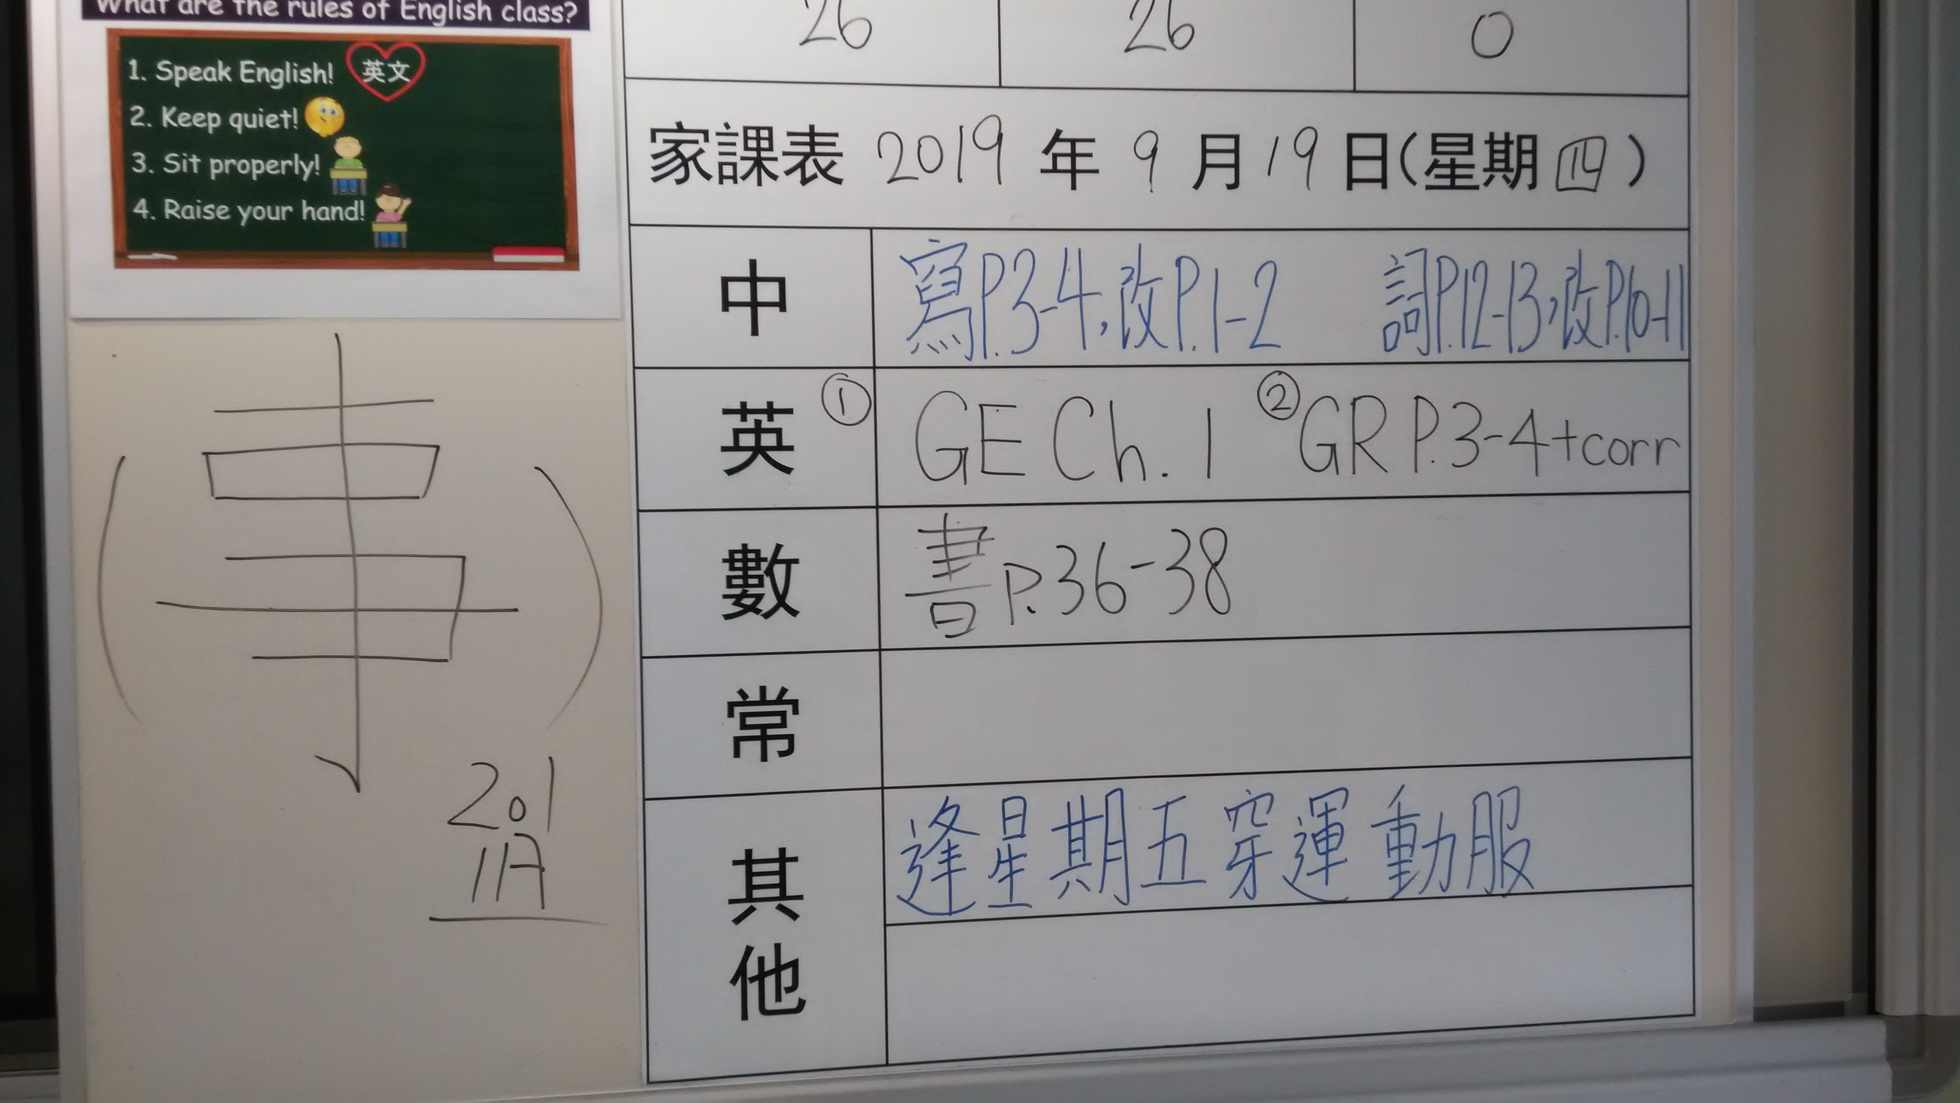 What are the rules of English class?
1. Speak English! 英文
2. Keep quiet!
3. Sit properly!
4. Raise your hand!
26 26 0
家課表 2019 年 9 月 19 日(星期四)
中 寫P.3-4,改P.1-2 詞P.12-13,改P.10-11
英 ① GE Ch. 1 ② GR P.3-4+corr
數 書P.36-38
常
其他 逢星期五穿運動服
(事)
201